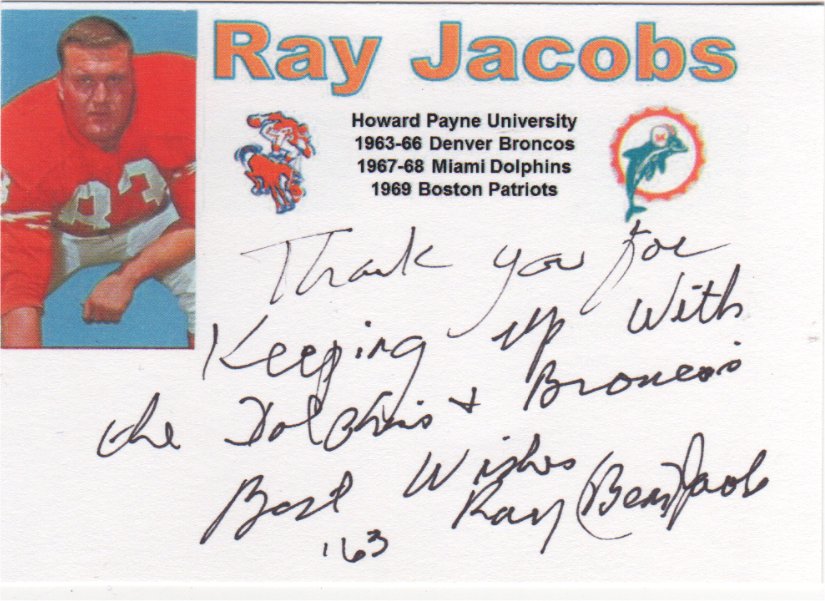 Ray Jacobs
Howard Payne University
1963-66 Denver Broncos
1967-68 Miami Dolphins
1969 Boston Patriots
83
Thank you for
Keeping up With
the Dolphins + Broncos
Best Wishes
Ray (Bear) Jacobs
'63